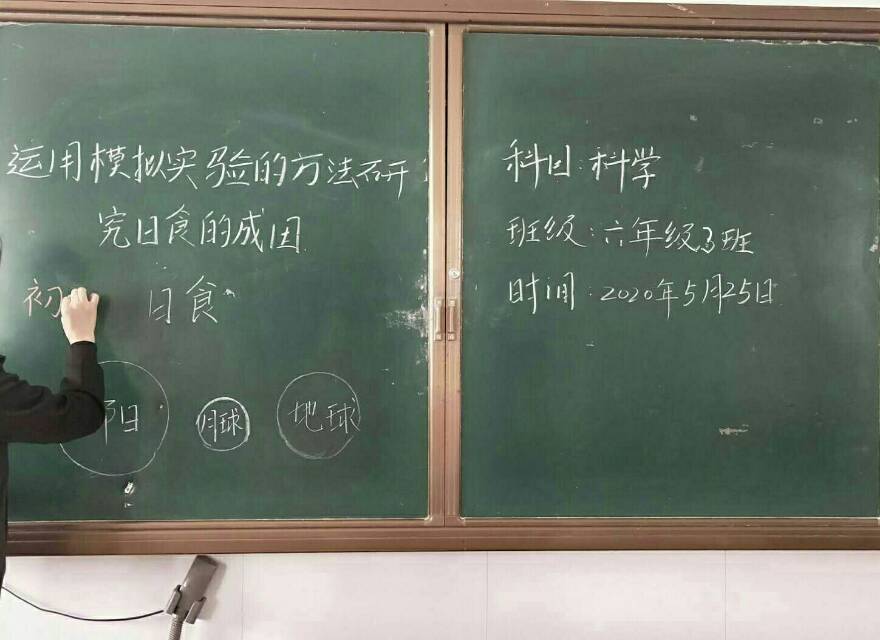 运用模拟实验的方法研
究日食的成因
初 日食
阳 月球 地球
科目:科学
班级:六年级3班
时间:2020年5月25日